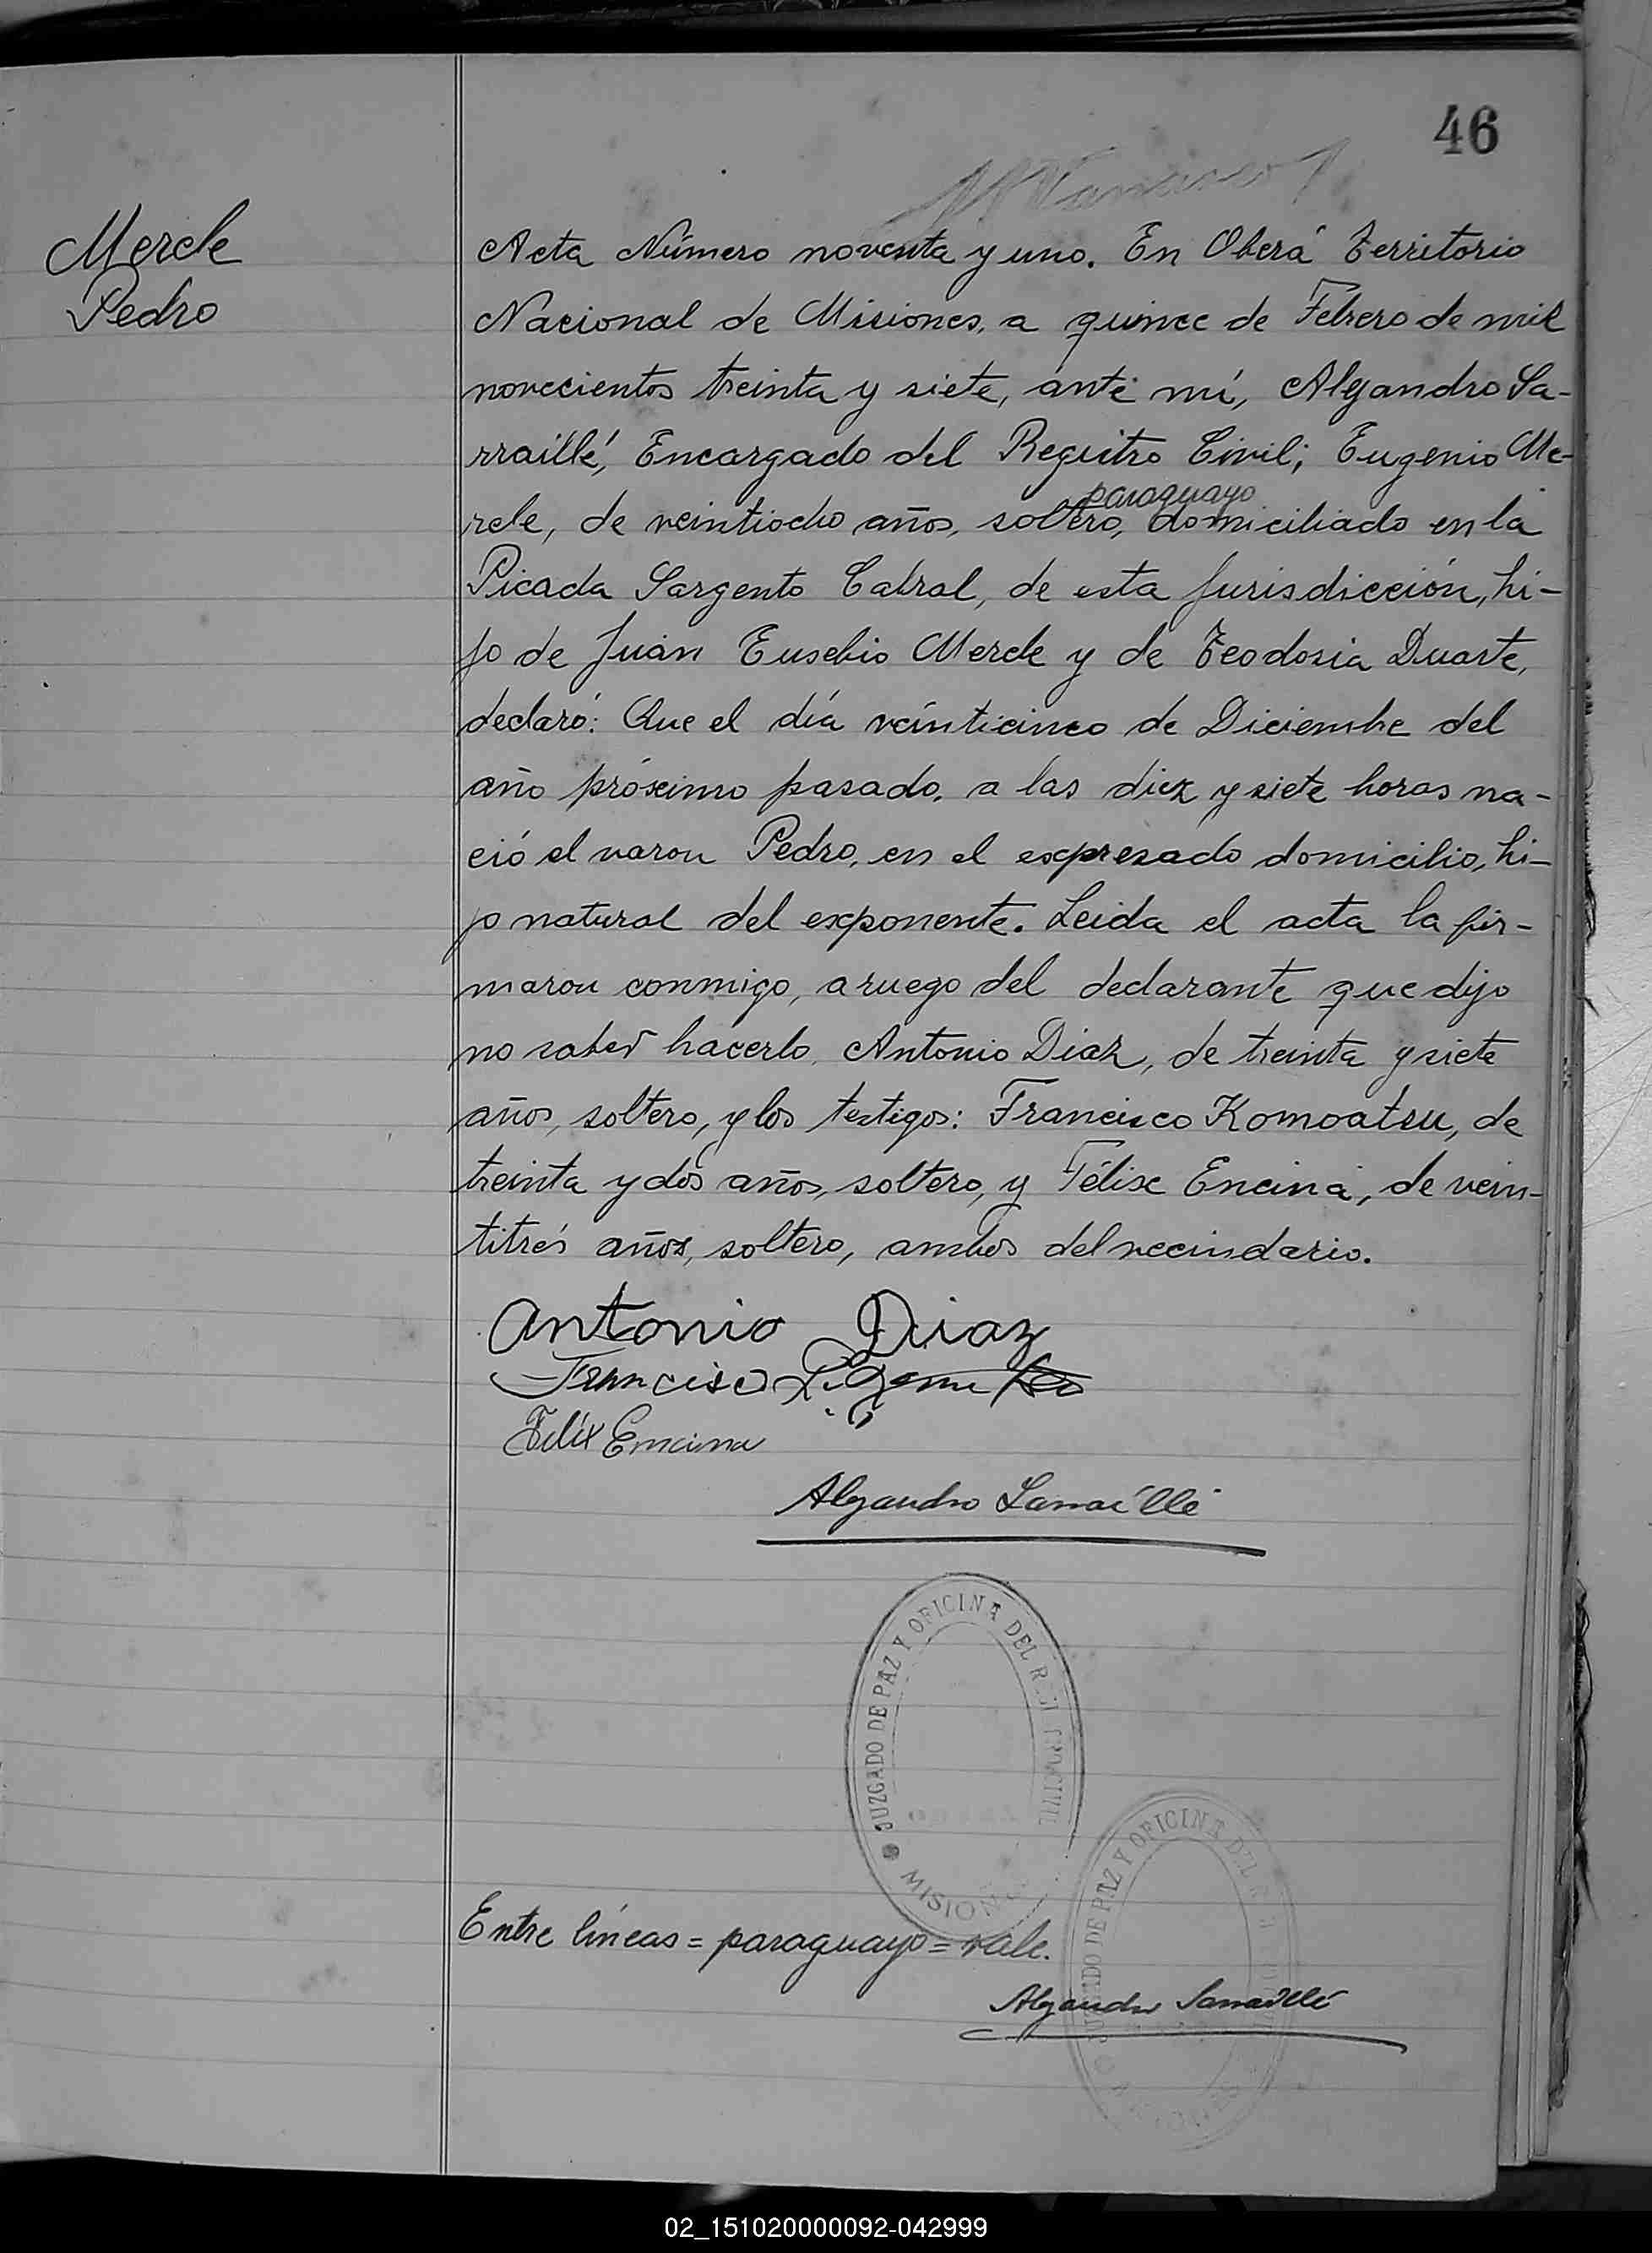 46
Merele
Pedro
Acta Número noventa y uno. En Oberá Territorio
Nacional de Misiones, a quince de Febrero de mil
novecientos treinta y siete, ante mí, Alejandro Sa-
rraillé, Encargado del Registro Civil; Eugenio Me-
paraguayo
rele, de veintiocho años, soltero, domiciliado en la
Picada Sargento Cabral, de esta jurisdicción, hi-
jo de Juan Eusebio Merele y de Teodosia Duarte,
declaró: Que el día veinticinco de Diciembre del
año próximo pasado, a las diez y siete horas na-
ció el varon Pedro, en el expresado domicilio, hi-
jo natural del exponente. Leida el acta la fir-
maron conmigo, a ruego del declarante que dijo
no saber hacerlo, Antonio Diaz, de treinta y siete
años, soltero, y los testigos: Francisco Komoatsu, de
treinta y dos años, soltero, y Félix Encina, de vein-
titrés años, soltero, ambos del vecindario.
Antonio Diaz
Francisco
Felix Emcina
Alejandro Sarraillé
JUZGADO DE PAZ Y OFICINA DEL
MISION
Entre líneas = paraguayo = vale.
JUZGADO DE PAZ Y OFICINA DEL
Alejandro Sarraillé
02_151020000092-042999